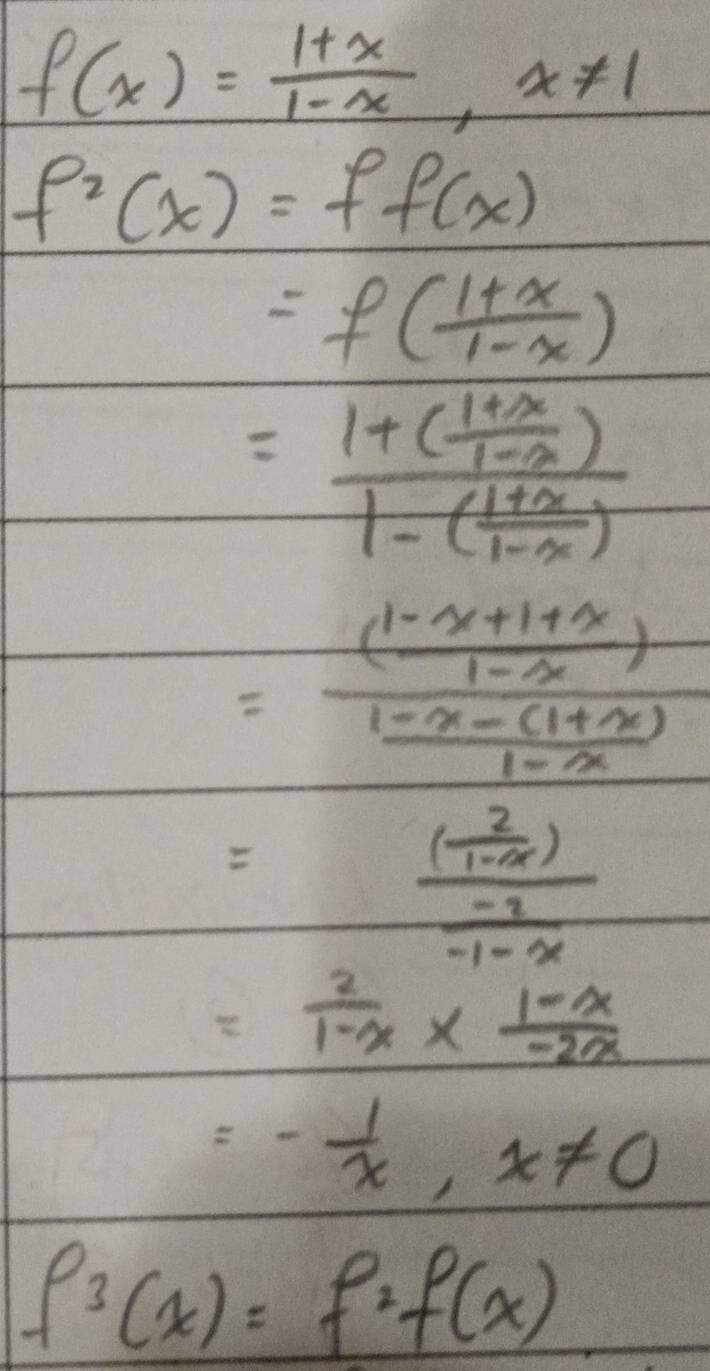 f(x) = (1+x)/(1-x) , x ≠ 1
f²(x) = f f(x)
= f((1+x)/(1-x))
= (1+((1+x)/(1-x)))/(1-((1+x)/(1-x)))
= ((1-x+1+x)/(1-x))/((1-x-(1+x))/(1-x))
= (2/(1-x))/((-2)/(-1-x))
= 2/(1-x) × (1-x)/(-2x)
= - 1/x , x ≠ 0
f³(x) = f²f(x)